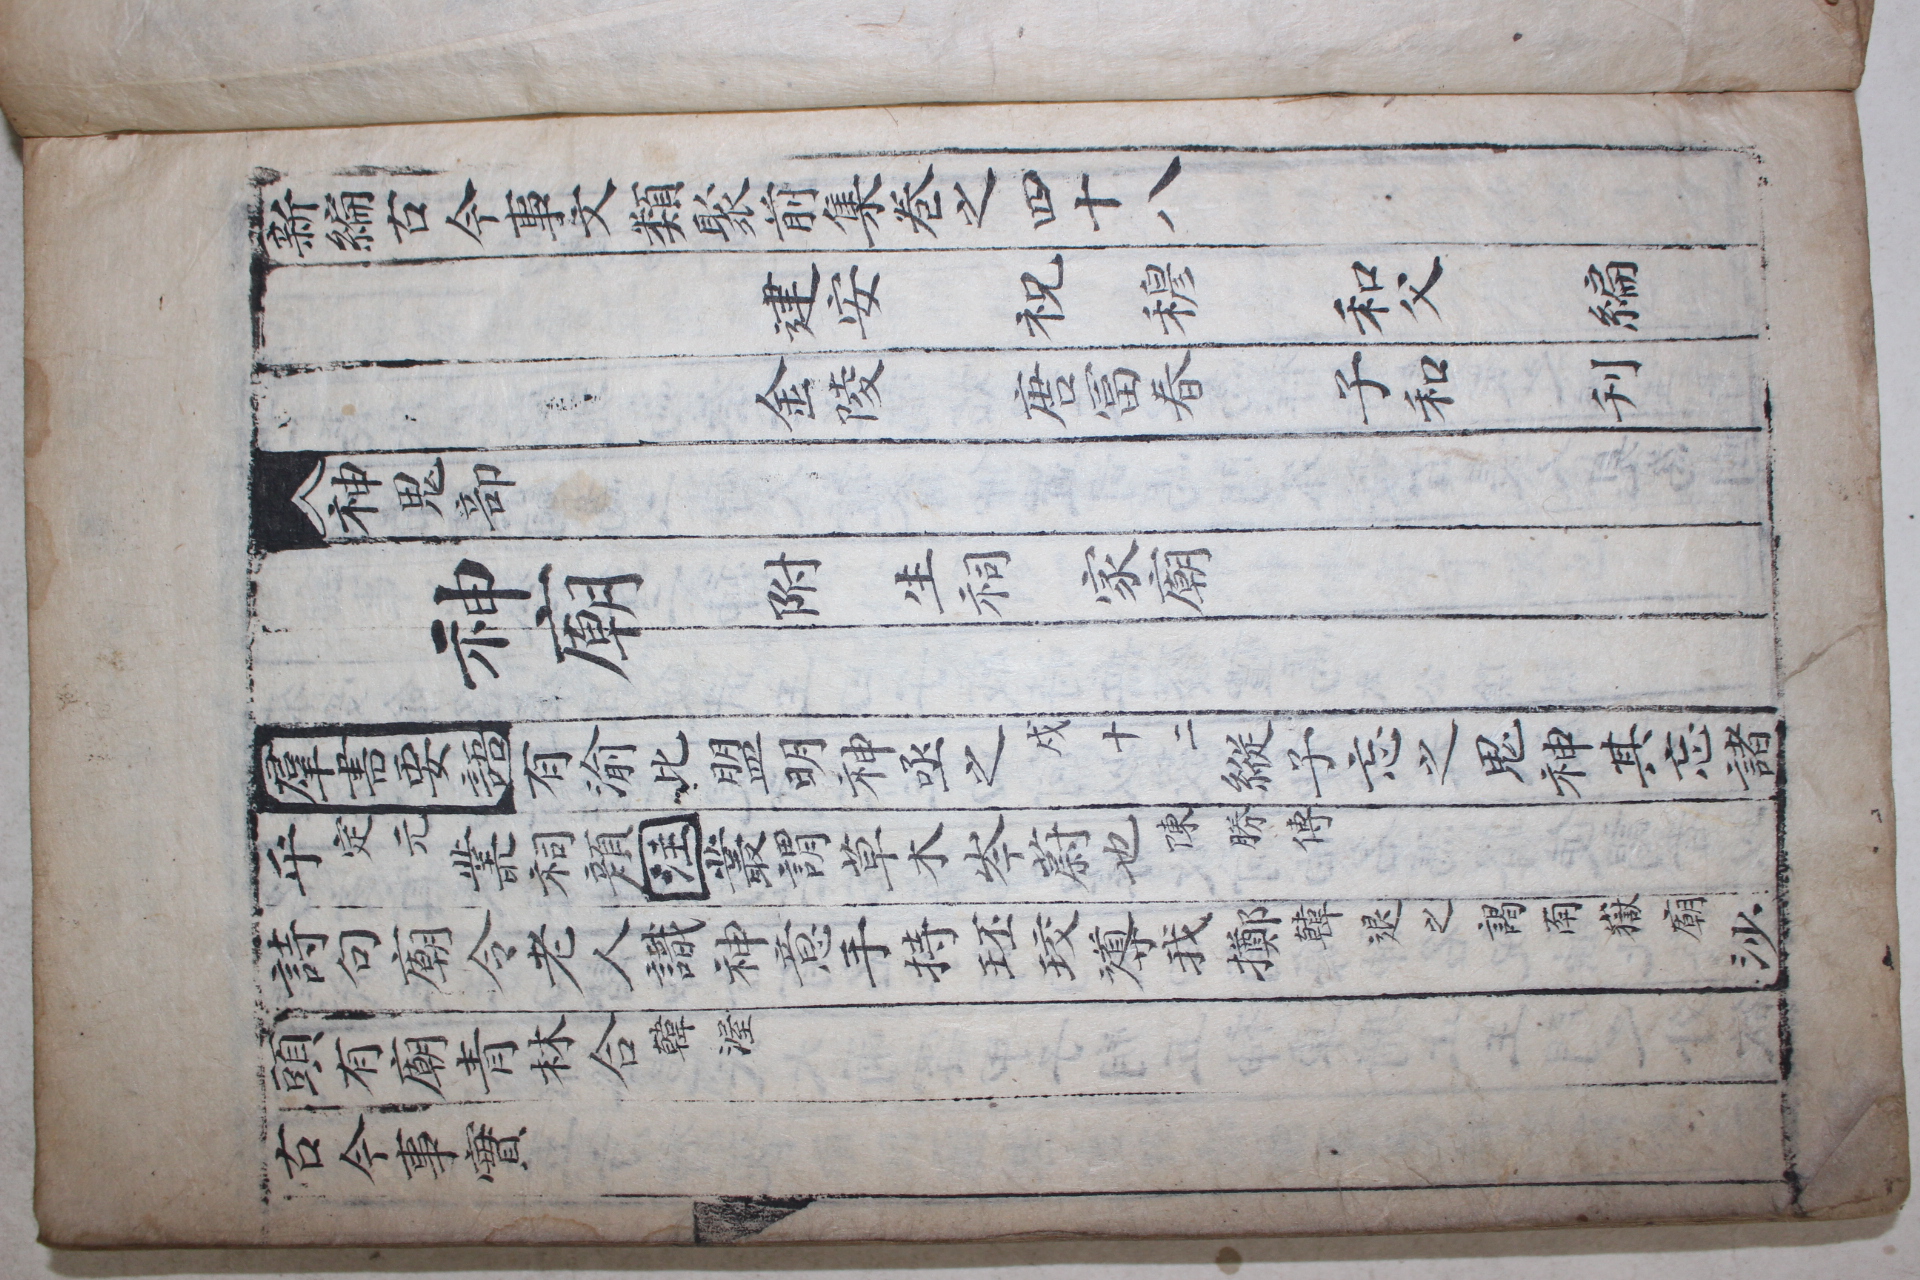 新編古今事文類聚前集卷之四十八
建安 祝 穆 和父 編
金陵 唐冨春 子和 刋
神鬼部
神廟 附 生祠 家廟
羣書要語有渝此盟明神亟之戍十二縱子忘之鬼神其忘諸
乎定元叢祠顔注叢謂草木岑蔚也陳勝傳
詩句廟令老人識神意手持珓珓導我擲韓退之謁南嶽廟沙
頭有廟青林合韓渥
古今事實